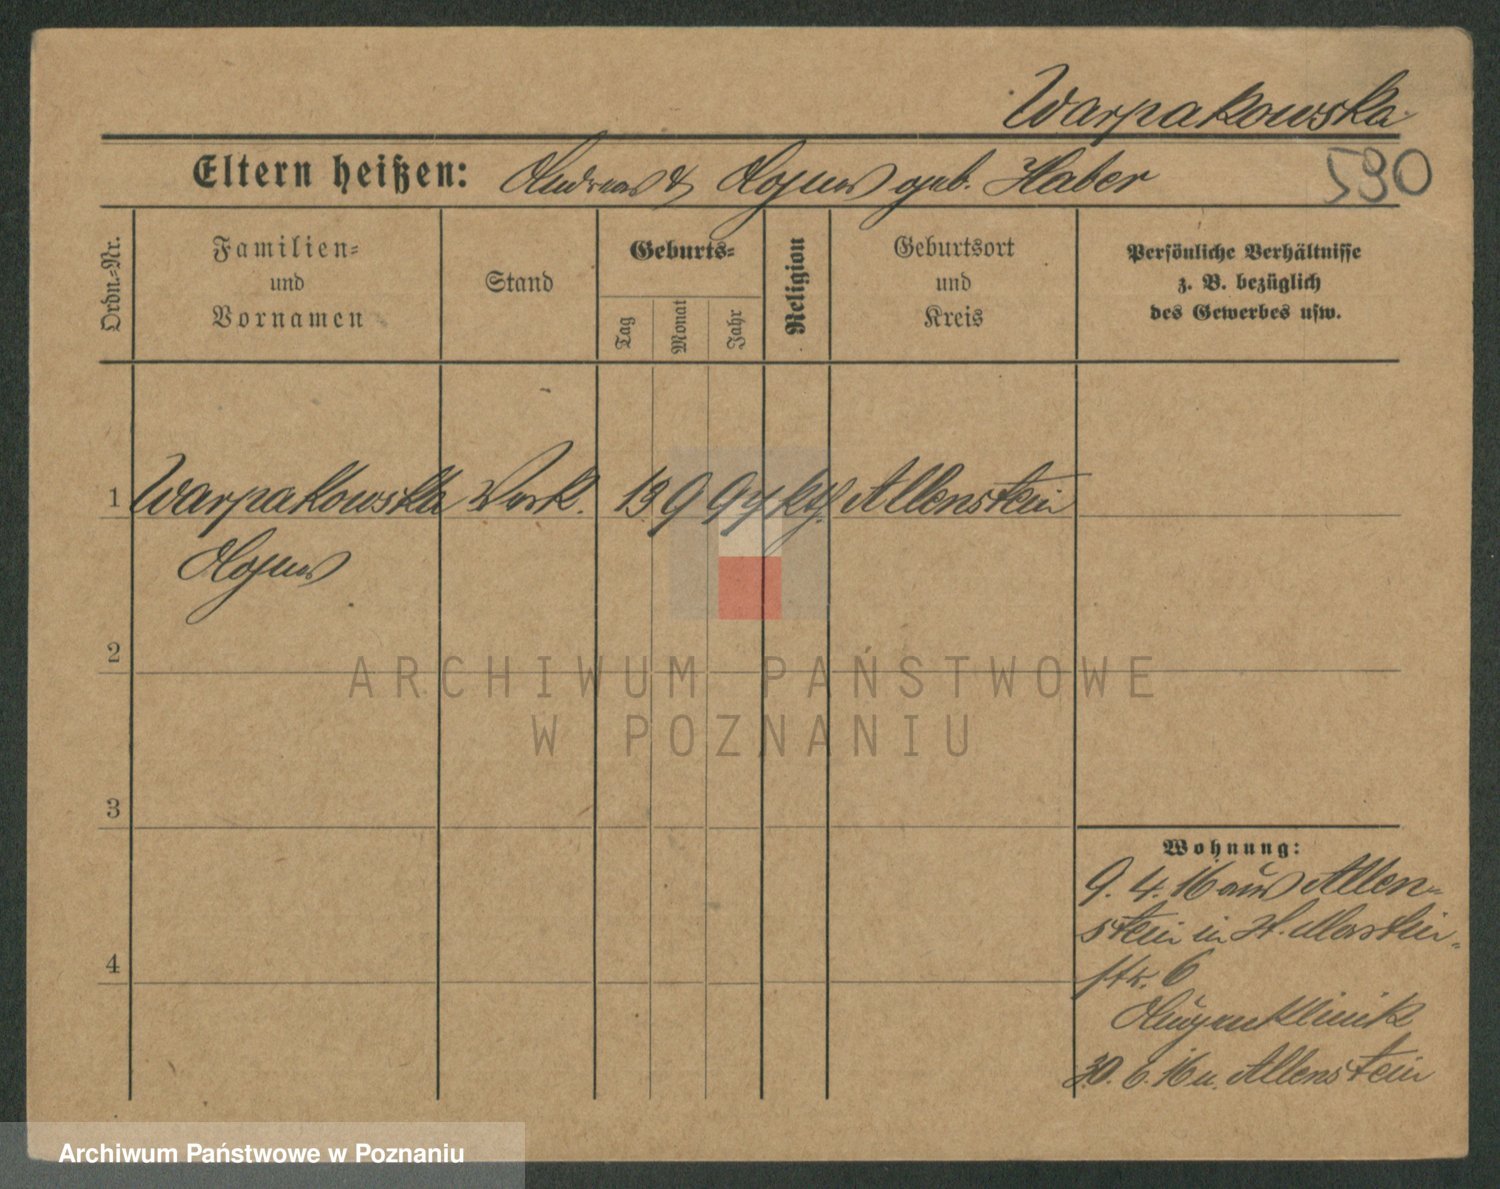 Warpakowska
Eltern heißen: Andreas & Agnes geb. Haber
590
Ordn.-Nr.
Familien-
und
Vornamen
Stand
Geburts-
Tag
Monat
Jahr
Religion
Geburtsort
und
Kreis
Persönliche Verhältnisse
z. B. bezüglich
des Gewerbes usw.
1 Warpakowska Verk. 13 9 99 kth. Allenstein
Agnes
2
ARCHIWUM PAŃSTWOWE
W POZNANIU
3
Wohnung:
9. 4. 16 aus Allen-
stein in St. Martin-
4
str. 6
Augenklinik
30. 6. 16 n. Allenstein
Archiwum Państwowe w Poznaniu